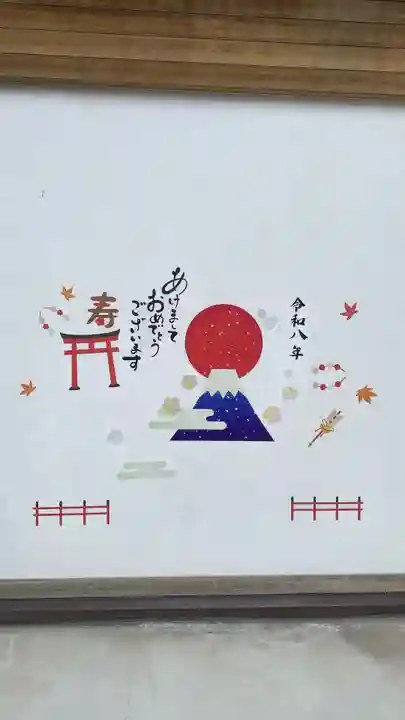 令和八年
あけまして
おめでとう
ございます
寿